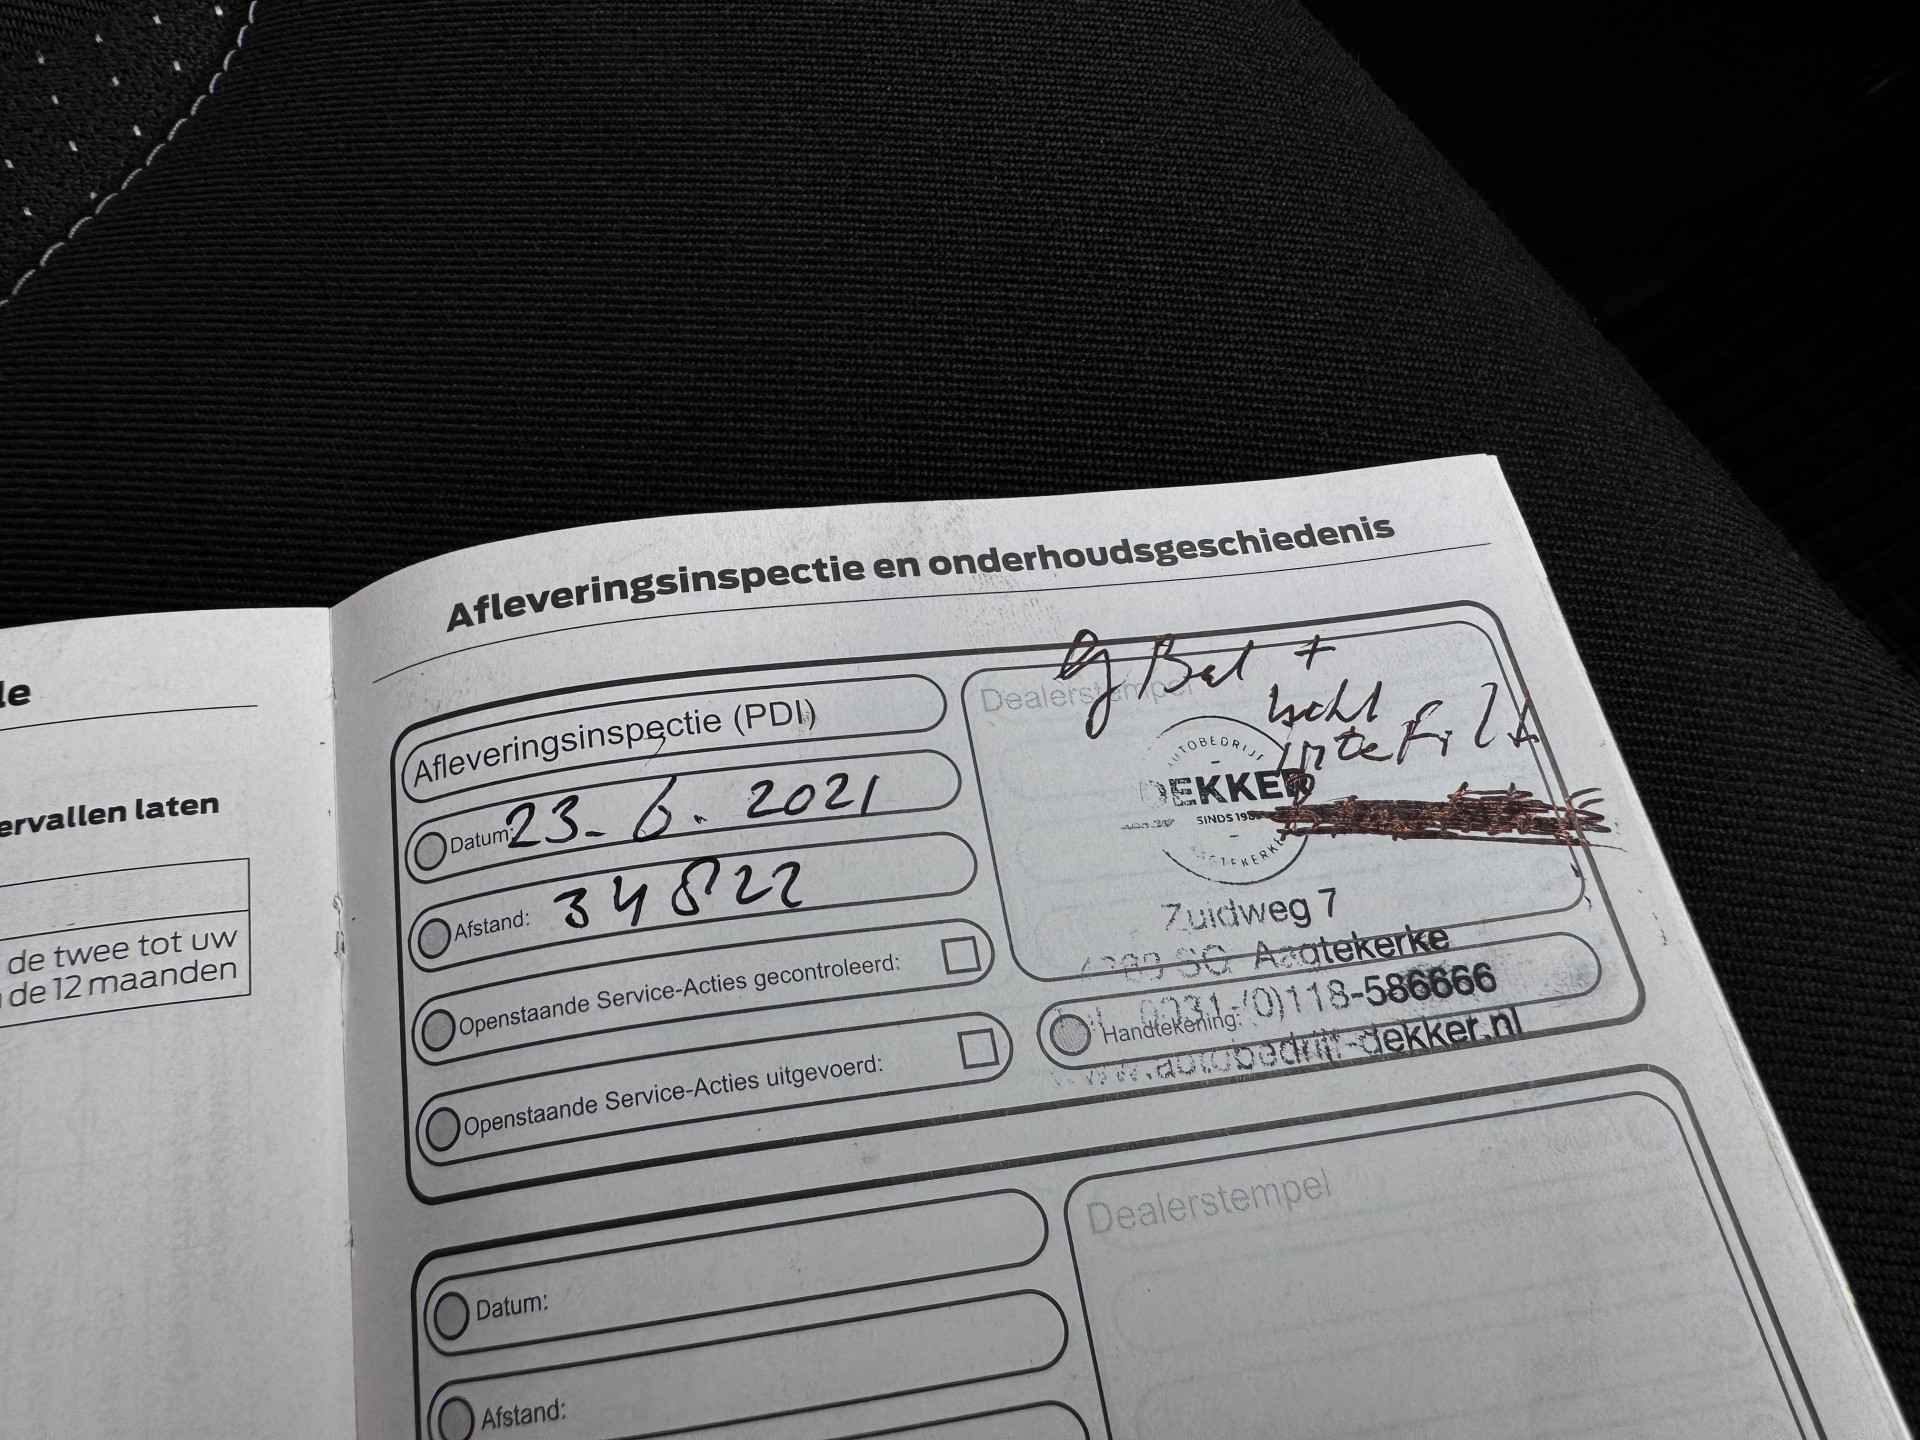 le
ervallen laten
de twee tot uw
de 12 maanden
Afleveringsinspectie en onderhoudsgeschiedenis
Afleveringsinspectie (PDI)
Datum: 23-6.2021
Afstand: 34822
Openstaande Service-Acties gecontroleerd:
Openstaande Service-Acties uitgevoerd:
Dealerstempel
+
AUTOBEDRIJF
DEKKER
SINDS
AAGTEKERKE
Zuidweg 7
SG Aagtekerke
0031-(0)118-586666
Handtekening:
www.autobedrijf-dekker.nl
Datum:
Afstand:
Dealerstempel